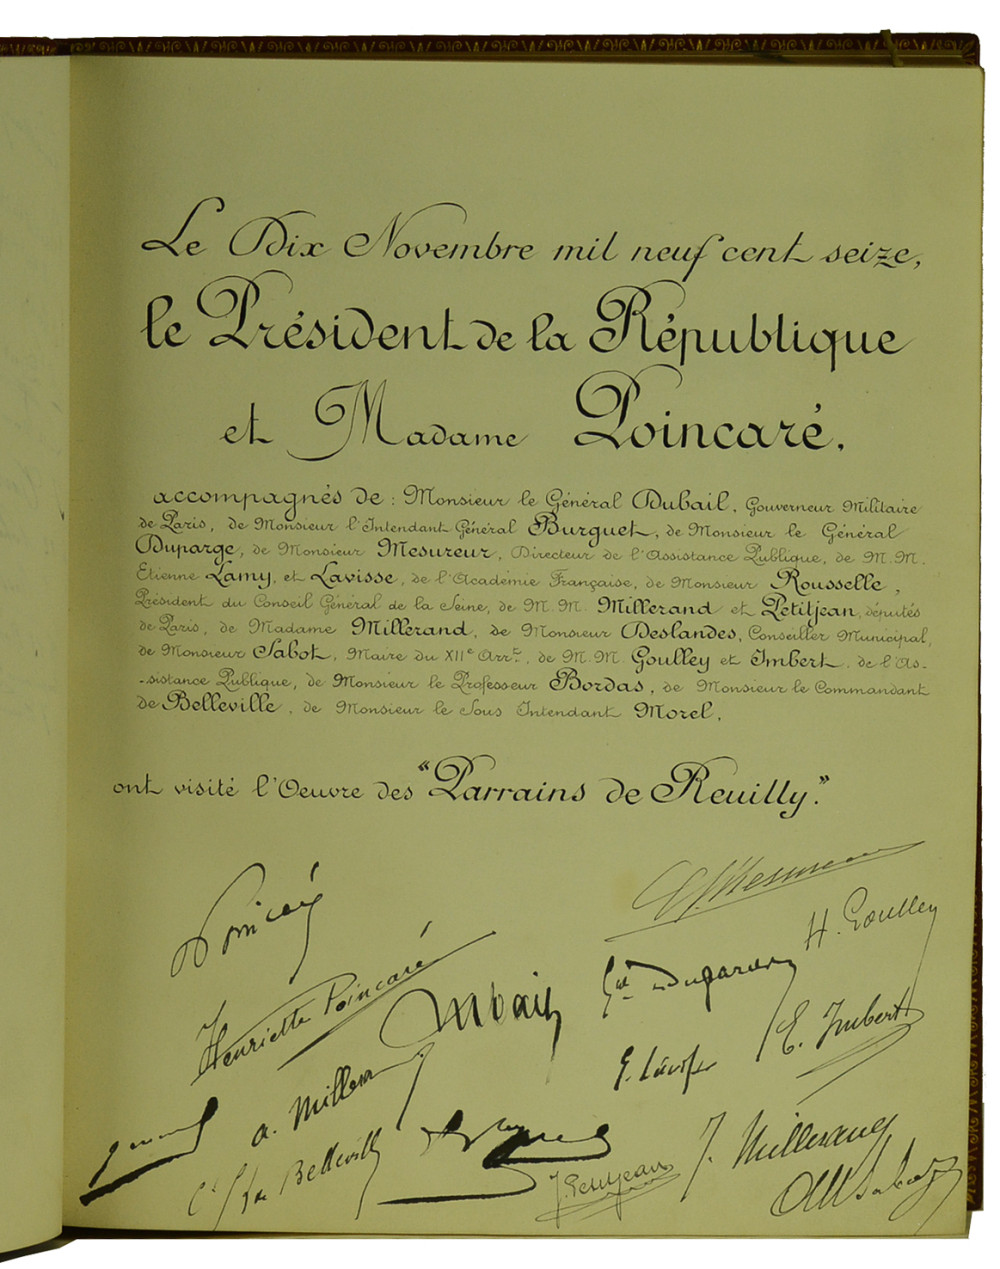 Le Dix Novembre mil neuf cent seize,
le Président de la République
et Madame Poincaré,
accompagnés de : Monsieur le Général Dubail, Gouverneur Militaire
de Paris, de Monsieur l'Intendant Général Burguet, de Monsieur le Général
Duparge, de Monsieur Mesureur, Directeur de l'Assistance Publique, de M.M.
Etienne Lamy, et Lavisse, de l'Académie Française, de Monsieur Rousselle,
Président du Conseil Général de la Seine, de M.M. Millerand et Petitjean, députés
de Paris, de Madame Millerand, de Monsieur Deslandes, Conseiller Municipal,
de Monsieur Sabot, Maire du XIIe Arrt., de M.M. Goulley et Imbert, de l'As-
-sistance Publique, de Monsieur le Professeur Bordas, de Monsieur le Commandant
de Belleville, de Monsieur le Sous Intendant Morel,
ont visité l'Oeuvre des "Parrains de Reuilly."
Poincaré
Mesureur
H. Goulley
Henriette Poincaré
Dubail
Gal Duparge
E. Imbert
E. Lavisse
A. Millerand
de Belleville
J. Petitjean
J. Millerand
Sabot